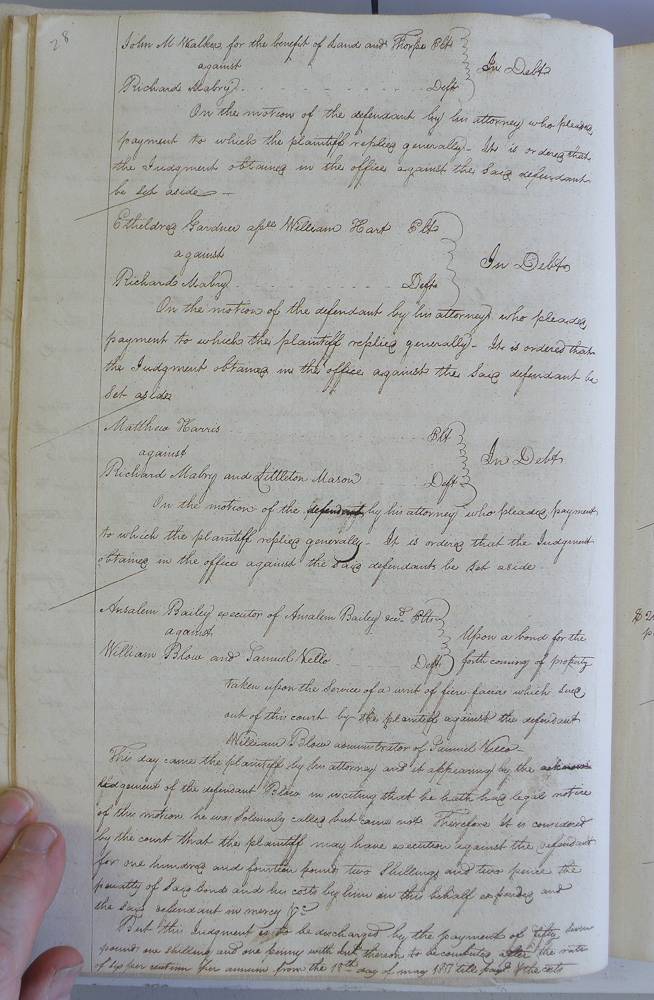 28
John M Walker for the benefit of Land and Thorpe Plt
against
In Debt
Richard Mabry Deft
On the motion of the defendant by his attorney who pleaded
payment to which the plaintiff replied generally - It is ordered that
the Judgment obtained in the office against the said defendant
be set aside -
Etheldred Gardner assee William Hart Plt
against
In Debt
Richard Mabry Deft
On the motion of the defendant by his attorney who pleaded
payment to which the plaintiff replied generally - It is ordered that
the Judgment obtained in the office against the said defendant be
set aside
Matthew Harris Plt
against
In Debt
Richard Mabry and Littleton Mason Deft
On the motion of the defendants by his attorney who pleaded payment
to which the plaintiff replied generally - It is ordered that the Judgment
obtained in the office against the said defendants be set aside
Ansalem Bailey executor of Ansalem Bailey decd. Plt
against
Upon a bond for the
William Blow and Samuel Kello Deft
forth coming of property
taken upon the service of a writ of fiere facias which sued
out of this court by the plaintiff against the defendant
William Blow administrator of Samuel Kello -
This day came the plaintiff by his attorney and it appearing by the acknow
ledgement of the defendant Blow in writing that he hath had legal notice
of this motion he was solemnly called but came not Therefore it is considered
by the court that the plaintiff may have execution against the defendant
for one hundred and fourteen pound two shillings and two pence the
penalty of said bond and his costs by him in this behalf expended and
the said defendant in mercy &c
But this Judgment is to be discharged by the payment of fifty seven
pound one shilling and one penny with int thereon to be computed after the rate
of six per centum per annum from the 18th day of may 1817 till paid & the costs